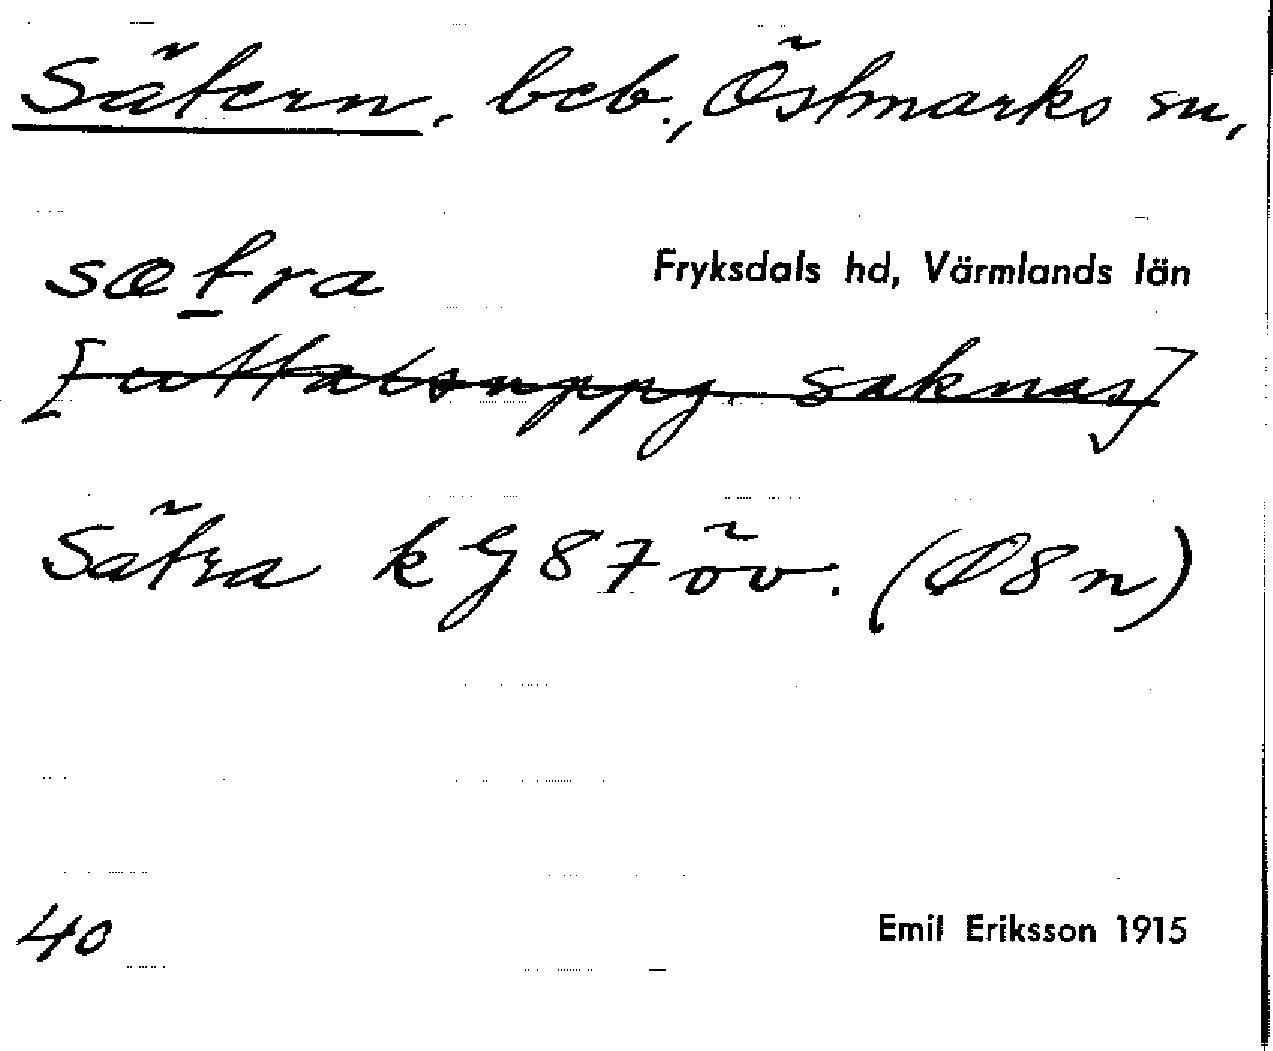 Sätern, beb., Östmarks sn,
sætra Fryksdals hd, Värmlands län
[uttalsuppg. saknas]
Sätra kG 87 öv. (Ø8n)
40 Emil Eriksson 1915